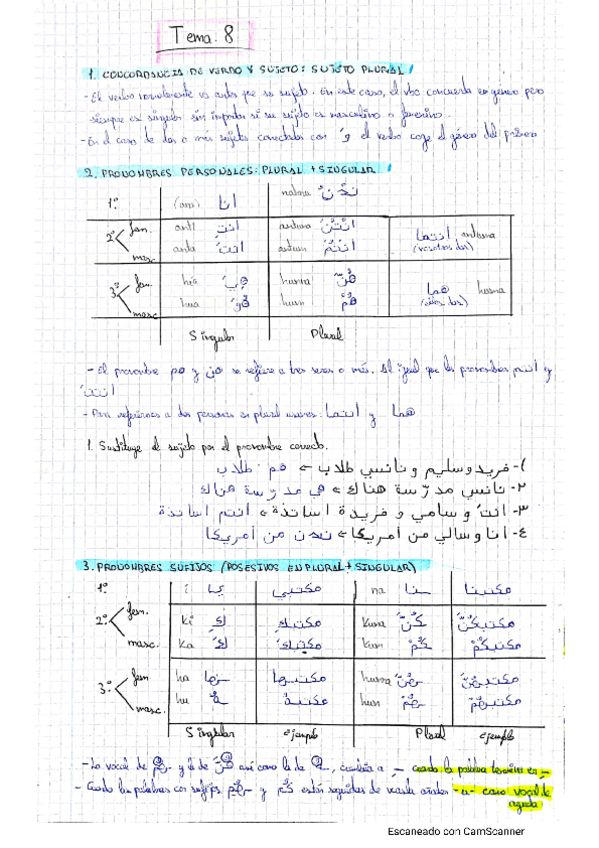 Tema 8
1. CONCORDANCIA DE VERBO Y SUJETO: SUJETO PLURAL
- El verbo normalmente va antes que su sujeto. En este caso, el verbo concuerda en género pero
siempre es singular sin importar si su sujeto es masculino o femenino.
- En el caso de dos o más sujetos conectados con وَ el verbo coge el género del primero
2. PRONOMBRES PERSONALES: PLURAL + SINGULAR
1º (ana) انا nahnu نَحْنُ
2º fem. anti انتِ antunna انْتُنَّ انتما antuma
masc. anta انتَ antum انْتُمْ (vosotros dos)
3º fem. hia هِيَ hunna هُنَّ هما huma
masc. hua هُوَ hum هُمْ (ellos dos)
Singular Plural
- El pronombre هم y هن se refiere a tres seres o más. Al igual que los pronombres انتم y
انتنّ
- Para referirnos a dos personas en plural usamos: انتما y هما
1. Sustituye el sujeto por el pronombre correcto.
١- فريد وسليم و نانسي طلاب ← هم طلاب
٢- نانس مدرّسة هناك ← هي مدرّسة هناك
٣- انتَ و سامي و فريدة اساتذة ← أنتم اساتذة
٤- أنا وسالي من أمريكا ← نحن من أمريكا
3. PRONOMBRES SUFIJOS (POSESIVOS EN PLURAL + SINGULAR)
1º i ـي مكتبي na ـنا مكتبنا
2º fem. ki ـكِ مكتبكِ kunna كُنَّ مكتبكُنَّ
masc. ka ـكَ مكتبكَ kum كُمْ مكتبكُمْ
3º fem ha ـها مكتبها hunna ـهُنَّ مكتبهُنَّ
masc. hu ـهُ مكتبهُ hum ـهُمْ مكتبهُمْ
Singular ejemplo Plural ejemplo
- La vocal de ـهُم y la de ـهُنَّ así como la de ـهُ, cambia a ـِ cuando la palabra termina en ـِ
- Cuando las palabras con sufijos ـهُم y كُم están seguidas de waSla añaden -u- como vocal de
ayuda
Escaneado con CamScanner